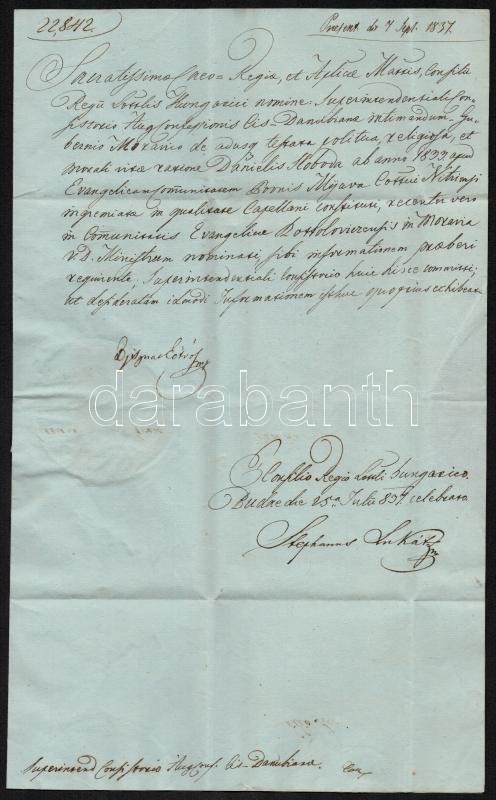 22,842.
Present. der 7 Sept. 1837.
Sacratissimae Caeo-Regiae, et Aplicae Mattis, Consilii
Regii Lottlis Hungarici nomine. Superintendentiali Con-
sistorio Aug. Confessionis Cis-Danubiano intimandum. Gu-
bernio Moravico de adusq testata politica, religiosa, et
morali vitae ratione Danielis Sloboda ab anno 1833. apud
Evangelicam Comunitatem Ppdnis Mijava Cottui Nitriensi
ingremiata in qualitate Capellani constituti, recenter vero
in Comunitatis Evangelicae Rottalovicensis in Moravia
V.D. Ministrum nominati, sibi informationem praeberi
requirente, Superintendentiali Consistorio huic hisce committi;
ut desideratam idmodi Informationem isthuc quo prius exhibeat.
Ignat Eötvös mp
darabanth
E Consilio Regio Lottli Hungarico.
Budae die 25a Julii 837. celebrato
Stephanus Lukáts mp
Superintend Consistorio Aug Conf. Cis-Danubiano.